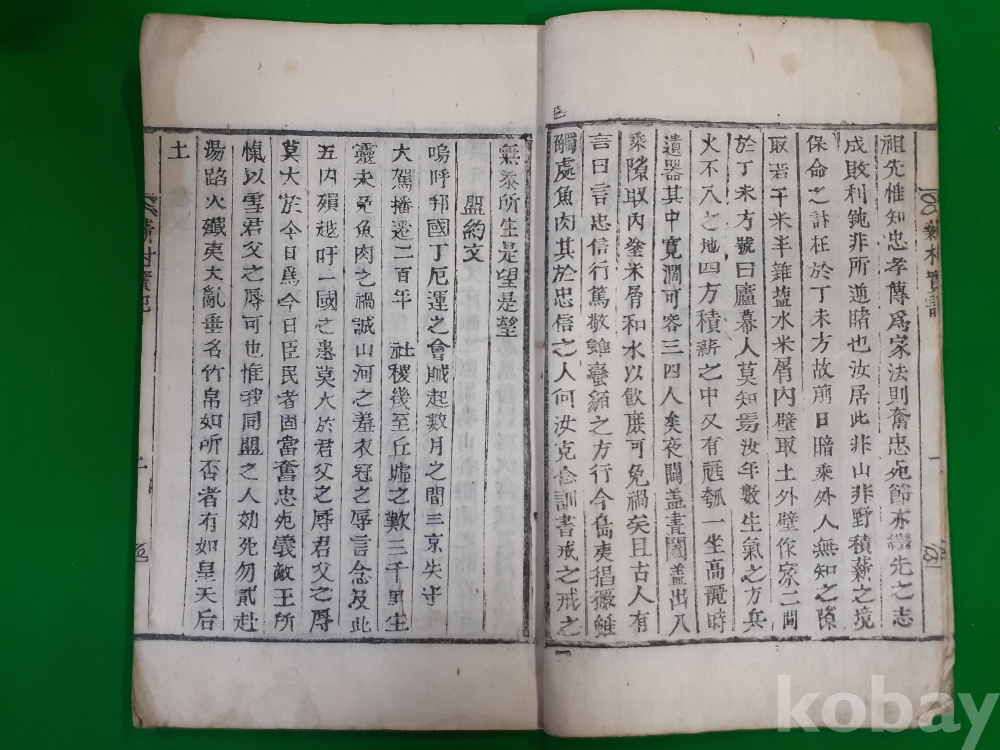 祖先惟知忠孝傳爲家法則奮忠死節亦繼先之志
成敗利鈍非所逆睹也汝居此非山非野積薪之境
保命之計枉於丁未方故前日暗乘外人無知之隙
取若干米半雜塩水米屑內壁取土外壁作家二間
於丁未方號曰廬幕人莫知焉汝年數生氣之方兵
火不入之地四方積薪之中又有瓠一坐高麗時
遺器其中寬濶可容三四人矣夜闢盖晝闔盖出入
乘隙取內塗米屑和水以飮庶可免禍矣且古人有
言曰言忠信行篤敬雖蠻貊之方行今島夷猖獗雖
觸處魚肉其於忠信之人何汝克念訓書戒之戒之
無忝所生是望是望
盟約文
嗚呼邦國丁厄運之會賊起數月之間三京失守
大駕播遷二百年 社稷幾至丘墟之歎三千里生
靈未免魚肉之禍誠山河之羞衣冠之辱言念及此
五內殞越吁一國之患莫大於君父之辱君父之辱
莫大於今日爲今日臣民者固當奮忠死義敵王所
愾以雪君父之辱可也惟我同盟之人効死勿貳赴
湯蹈火殲夷大亂垂名竹帛如所否者有如皇天后
土
薪村實記
一
薪村實記
二
kobay